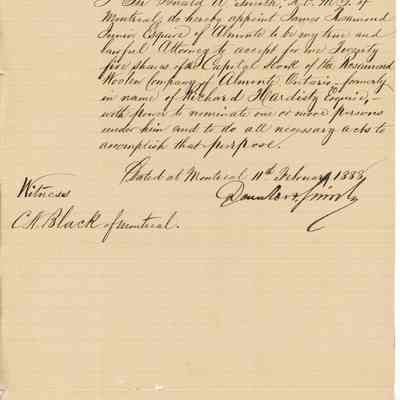 I Sir Donald A. Smith, K.C.M.G. of
Montreal, do hereby appoint James Rosamond
Junior Esquire of Almonte to be my true and
lawful Attorney to accept for me Seventy
five shares of the Capital Stock of the Rosamond
Woolen Company of Almonte Ontario - formerly
in name of Richard Hardisty Esquire, -
with power to nominate one or more persons
under him and to do all necessary acts to
accomplish that purpose.
Dated at Montreal 11th February 1888
Witness
C. N. Black of Montreal.